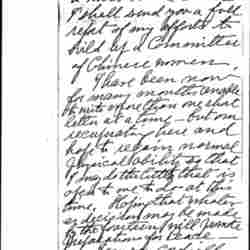 I shall send you a full
report of my efforts to
build up a Committee
of Chinese women.
I have been now
for many months unable
to write more than one short
letter at a time – but am
recuperating here and
hope to regain normal
physical ability so that
I may do the little that is
open to me to do at this
time. Hoping that whatever
decision may be made
the position will
preparations for peace –